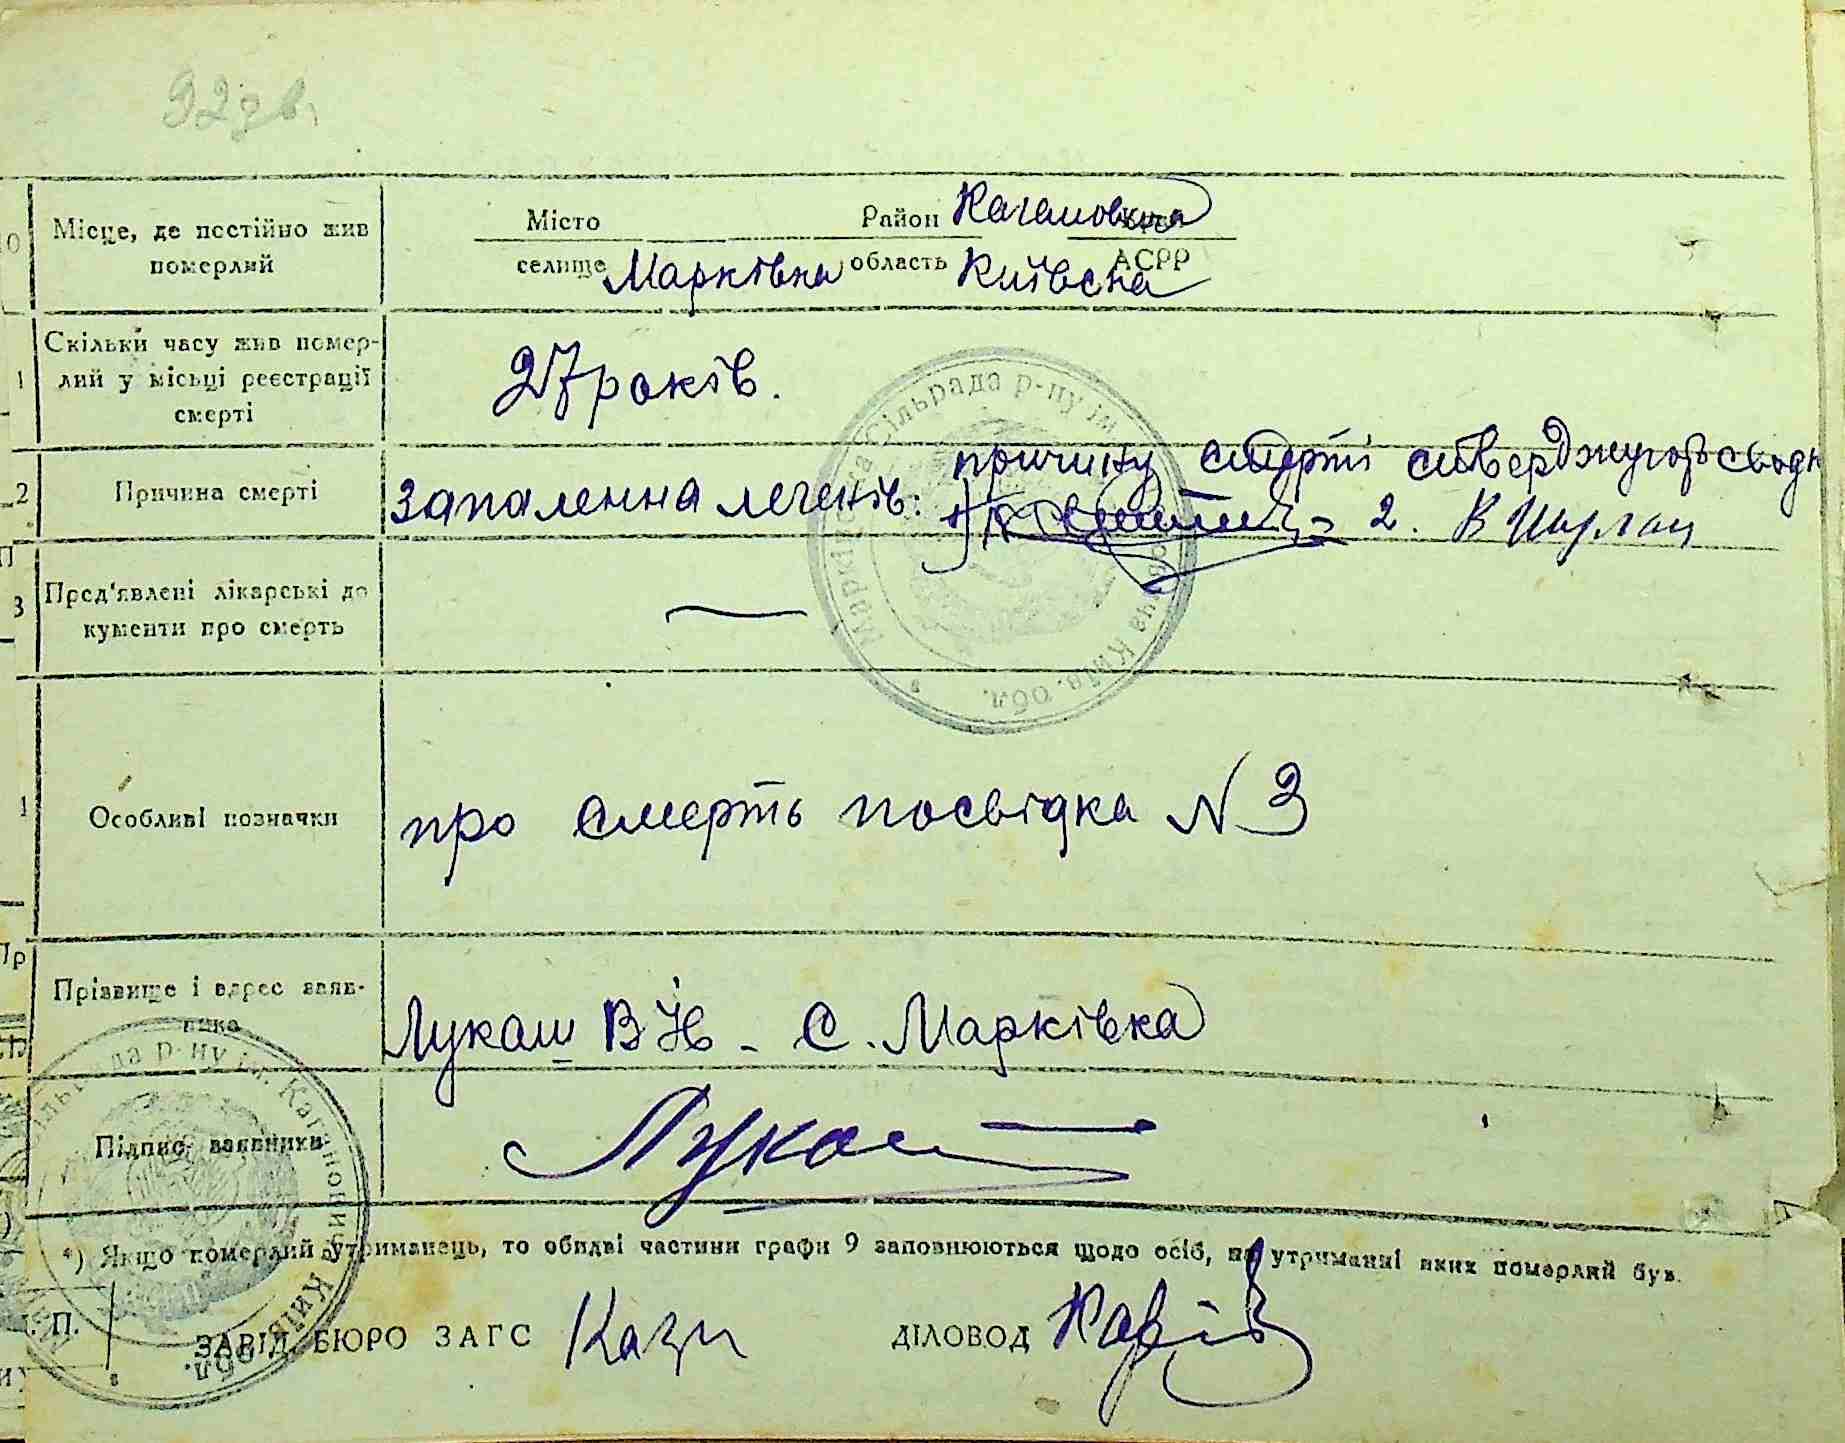 92 зв.
10 Місце, де постійно жив померлий
Місто Район Кагановича
селище Марківка область Київська АСРР
Скільки часу жив помер-
лий у місці реєстрації
смерті
27 років.
Причина смерті
Запаленна легенів: причину смерті стверджують свідк
1) 2. В Шурлан
Пред'явлені лікарські до
кументи про смерть
—
Особливі позначки
про смерть посвідка N 3
Прізвище і адрес заяв-
ника
Лукаш В Й - С. Марківка
Підпис заявника
Лукаш
*) Якщо померлий утриманець, то обидві частини графи 9 заповнюються щодо осіб, на утриманні яких померлий був.
ЗАВІД. БЮРО ЗАГС
ДІЛОВОД
Марківська Сільрада р-ну ім. Кагановича Київ. обл.
Сільрада р-ну ім. Кагановича Київ. обл.